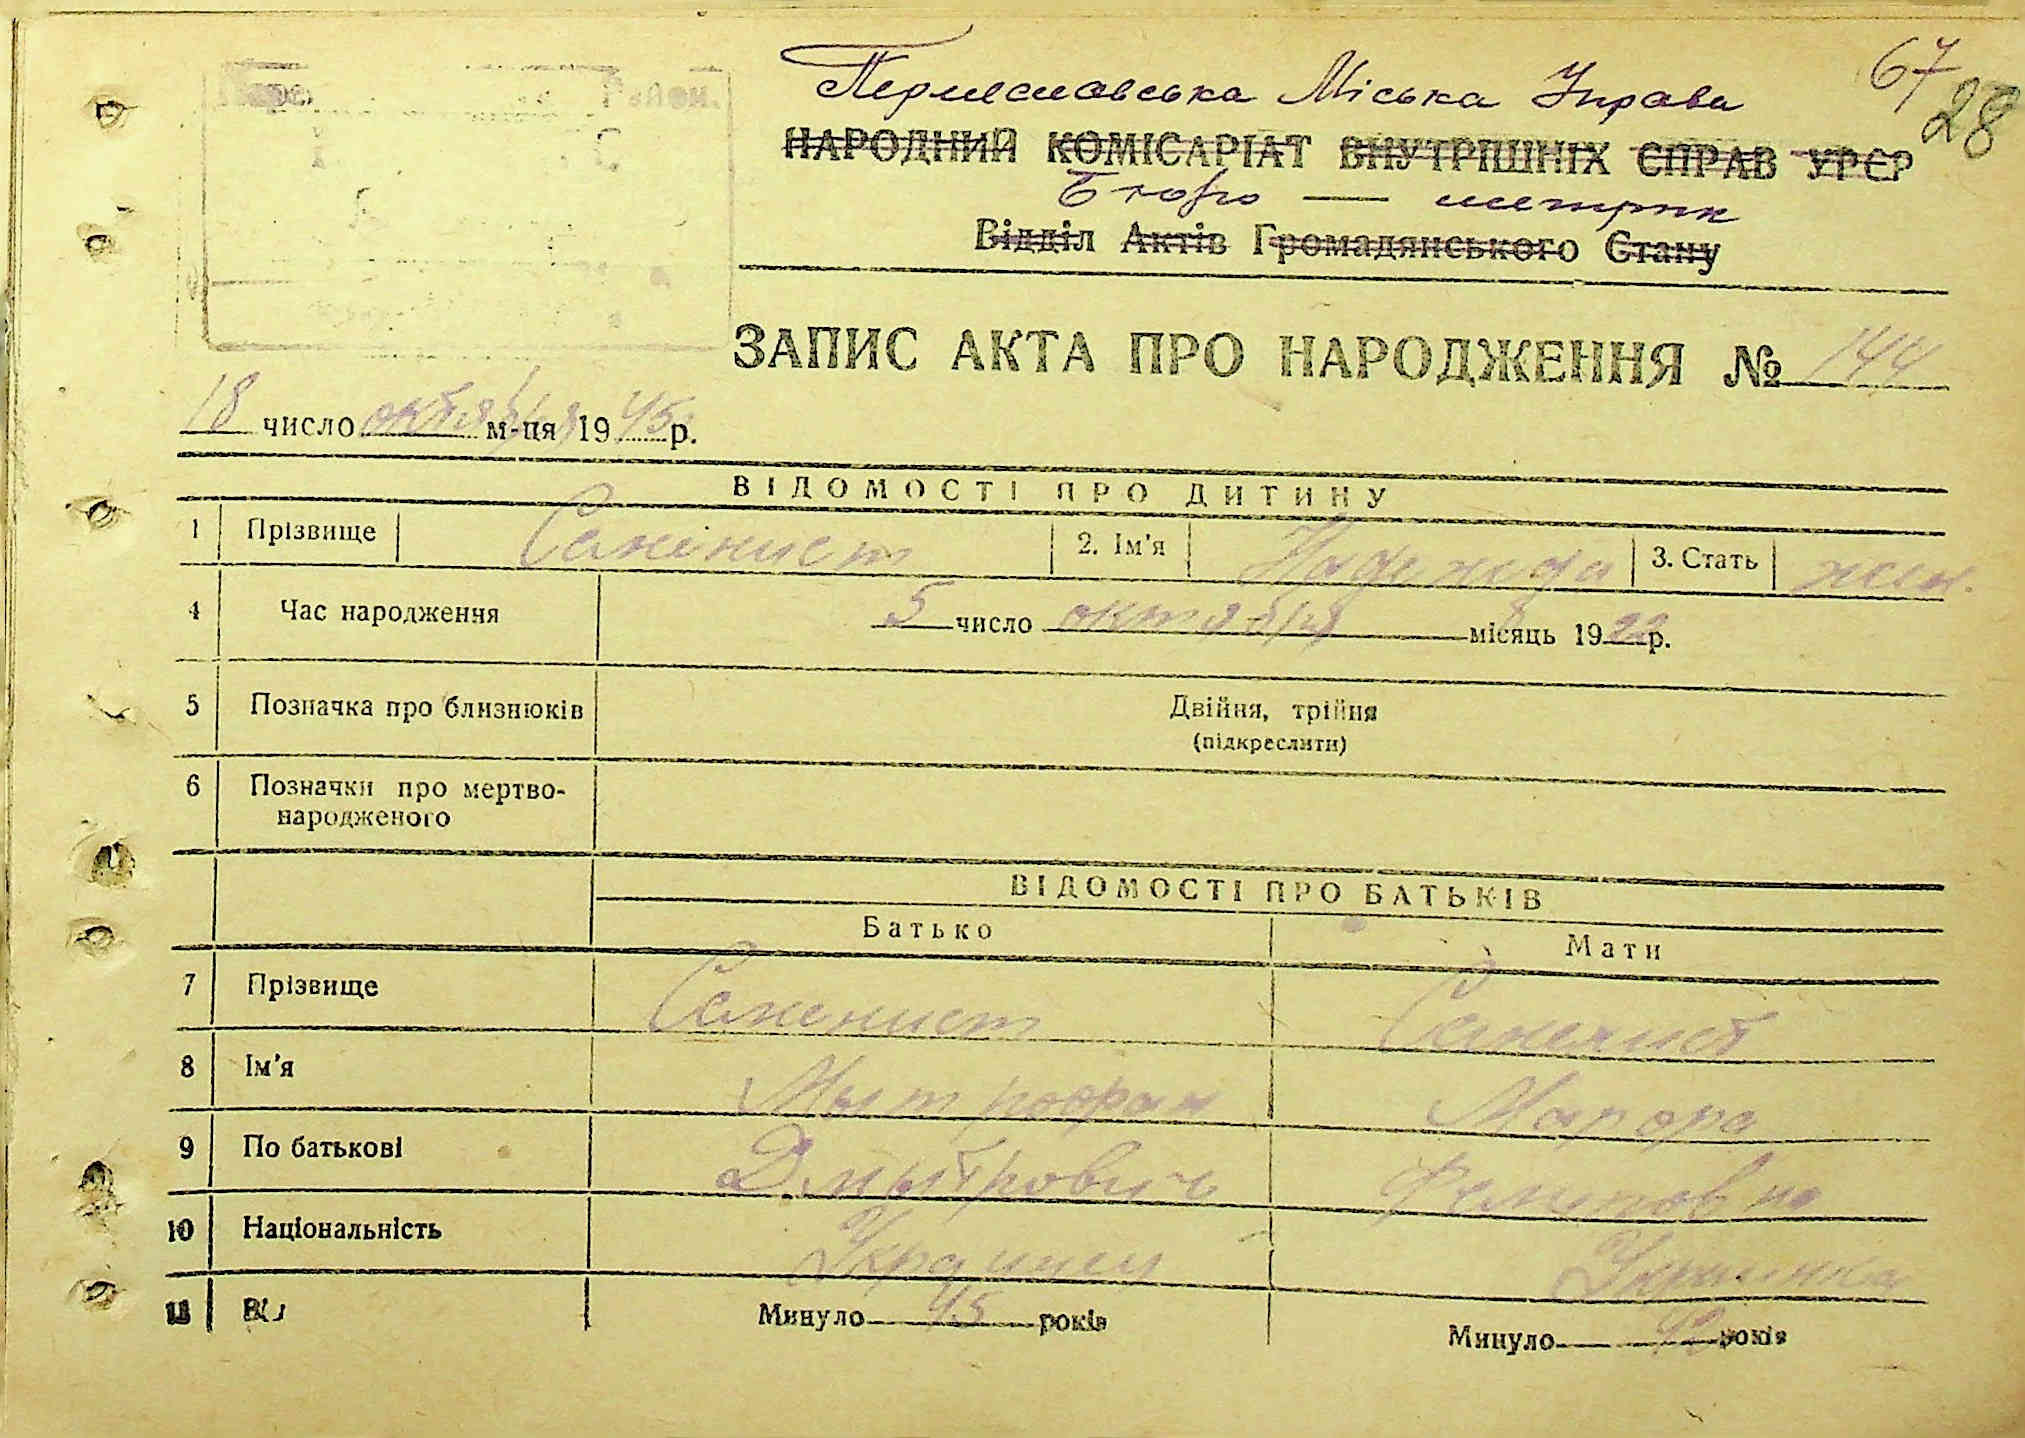 67
28
Міська Управа
НАРОДНИЙ КОМІСАРІАТ ВНУТРІШНІХ СПРАВ УРСР
Бюро — метрик
Відділ Актів Громадянського Стану
ЗАПИС АКТА ПРО НАРОДЖЕННЯ № 144
18 число октября м-ця 19 45 р.
ВІДОМОСТІ ПРО ДИТИНУ
1 Прізвище 2. Ім'я Надежда 3. Стать жен.
4 Час народження 5 число октября місяць 19 22 р.
5 Позначка про близнюків Двійня, трійня
(підкреслити)
6 Позначки про мертво-
народженого
ВІДОМОСТІ ПРО БАТЬКІВ
Батько Мати
7 Прізвище
8 Ім'я Мытрофан
9 По батькові Дмытрович
10 Національність Украинец Украинка
11 Вік Минуло 45 років Минуло 42 років